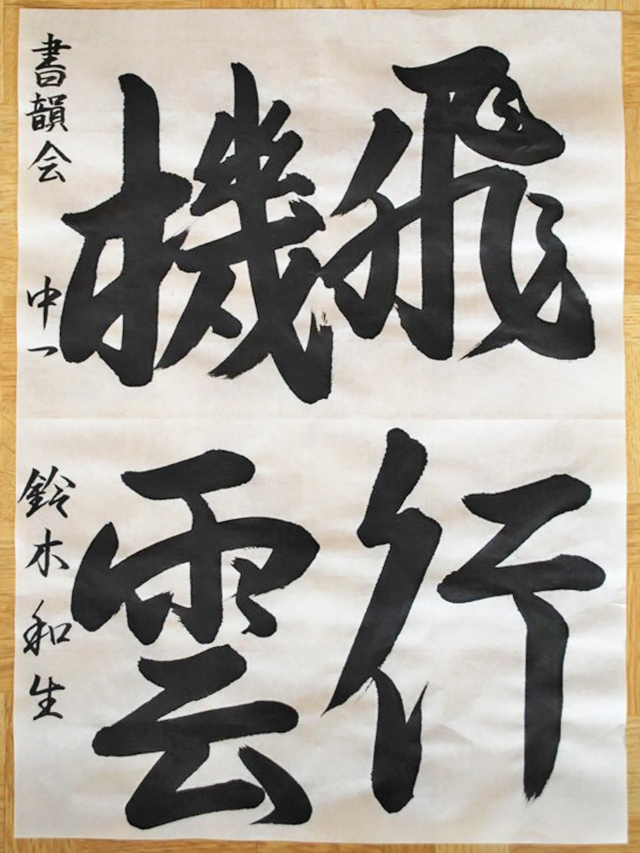 飛行
機雲
書韻会 中一 鈴木和生